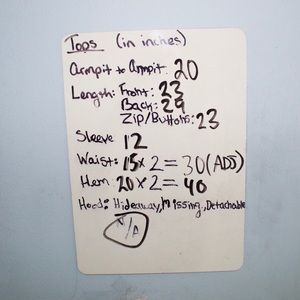 Tops (in inches)
Armpit to Armpit: 20
Length: Front: 23
Back: 29
Zip/Buttons: 23
Sleeve 12
Waist: 15x2=30(ADJ)
Hem 20x2=40
Hood: Hideaway, Missing, Detachable
N/A